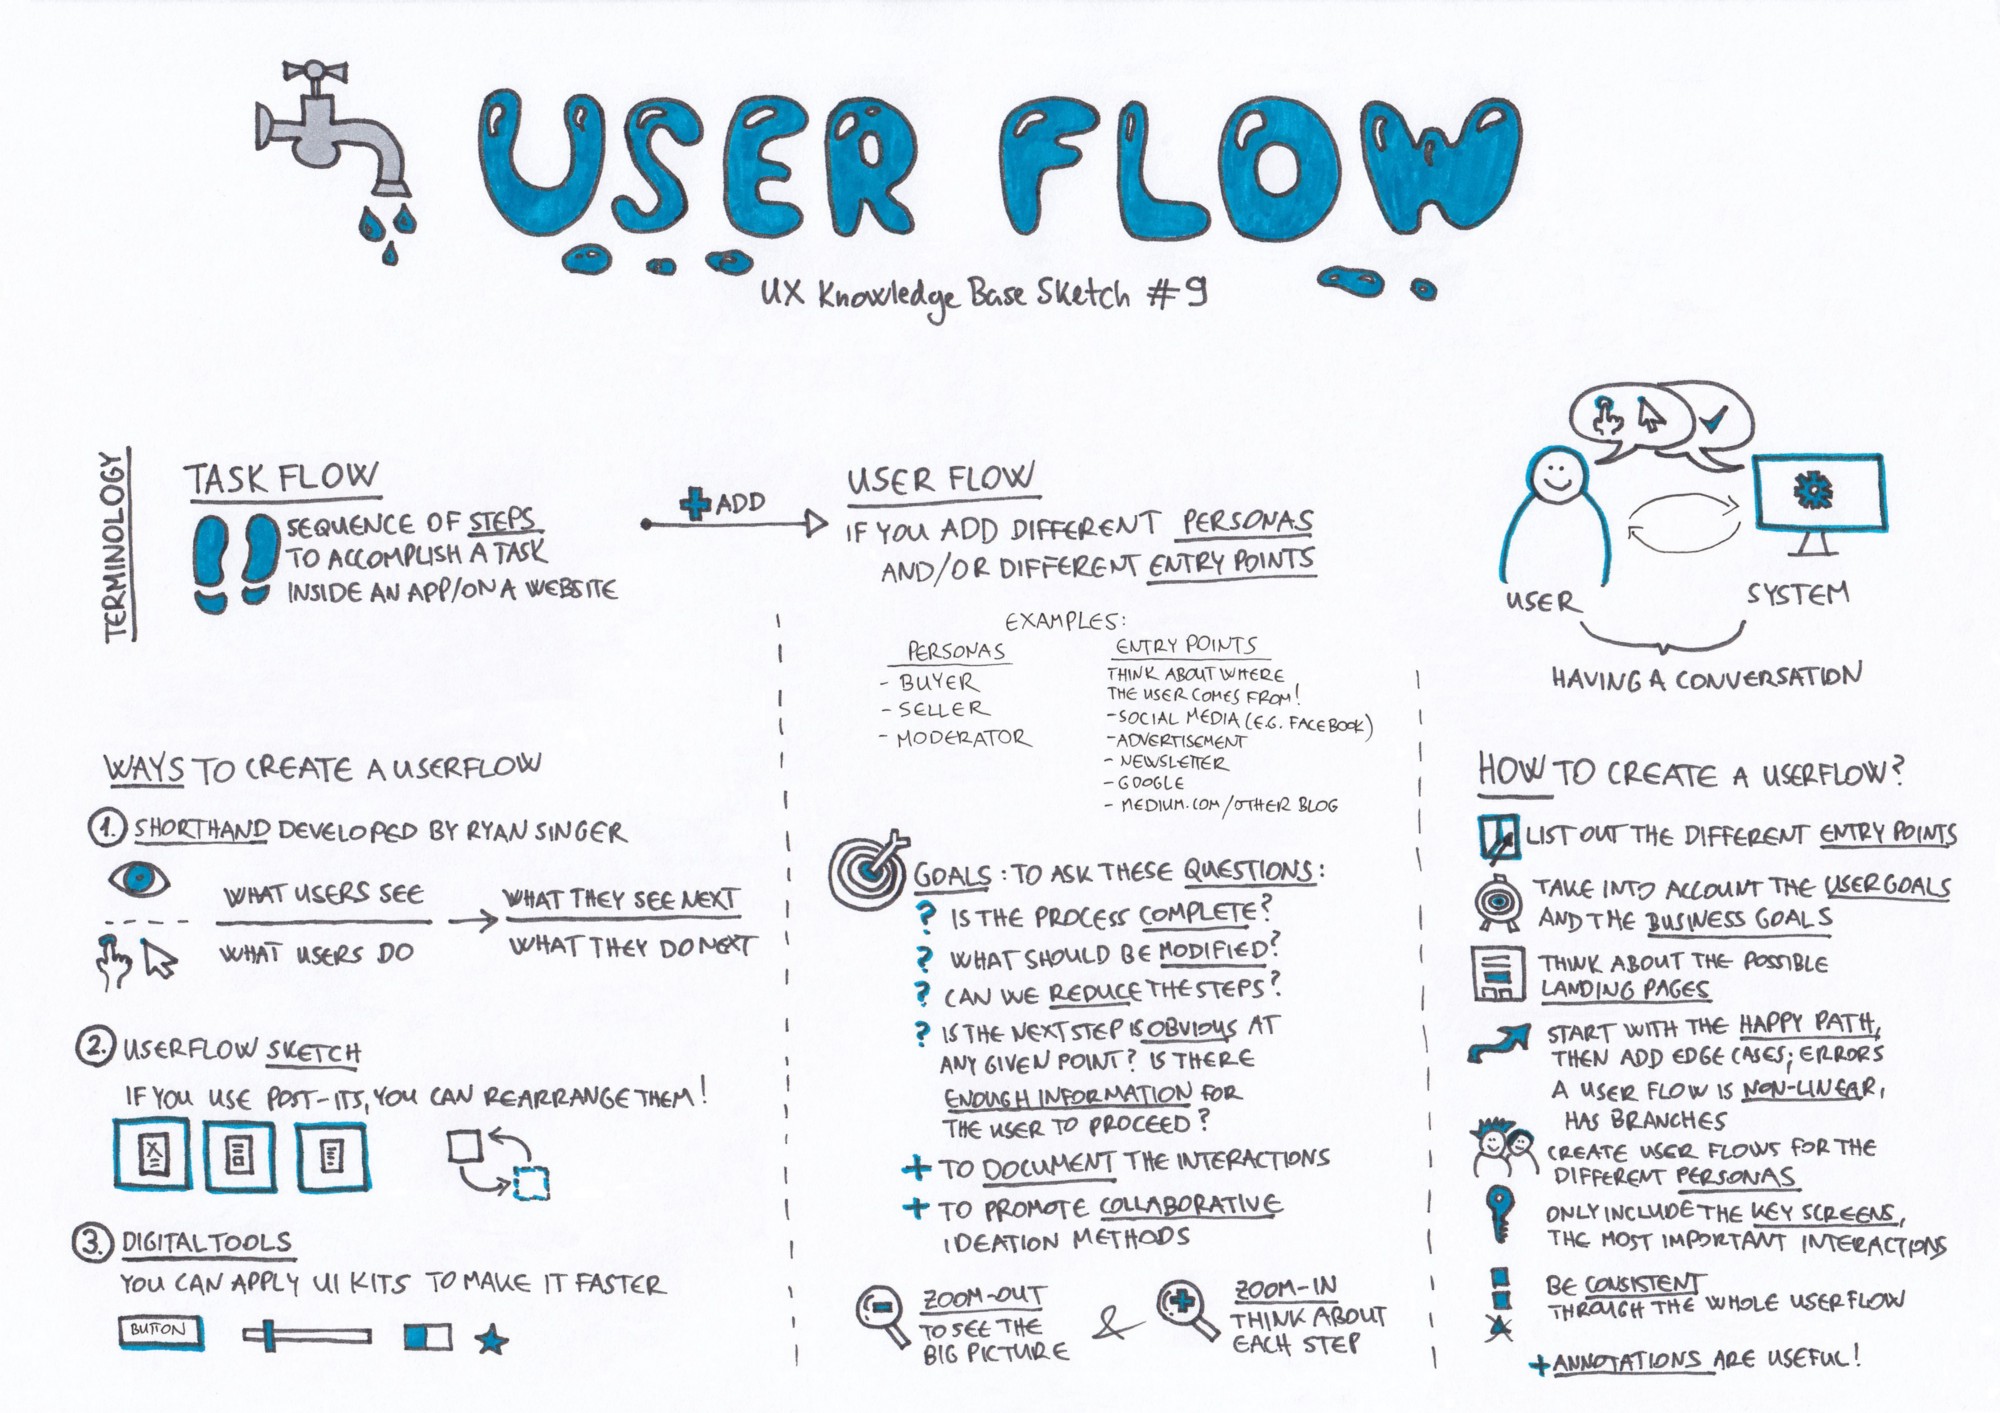 USER FLOW
UX Knowledge Base Sketch #9
TERMINOLOGY
TASK FLOW
SEQUENCE OF STEPS
TO ACCOMPLISH A TASK
INSIDE AN APP/ON A WEBSITE
+ ADD
USER FLOW
IF YOU ADD DIFFERENT PERSONAS
AND/OR DIFFERENT ENTRY POINTS
EXAMPLES:
PERSONAS
- BUYER
- SELLER
- MODERATOR
ENTRY POINTS
THINK ABOUT WHERE
THE USER COMES FROM!
- SOCIAL MEDIA (E.G. FACEBOOK)
- ADVERTISEMENT
- NEWSLETTER
- GOOGLE
- MEDIUM.COM/OTHER BLOG
USER
SYSTEM
HAVING A CONVERSATION
WAYS TO CREATE A USERFLOW
1. SHORTHAND DEVELOPED BY RYAN SINGER
WHAT USERS SEE
WHAT USERS DO
WHAT THEY SEE NEXT
WHAT THEY DO NEXT
2. USERFLOW SKETCH
IF YOU USE POST-ITS, YOU CAN REARRANGE THEM!
3. DIGITAL TOOLS
YOU CAN APPLY UI KITS TO MAKE IT FASTER
BUTTON
GOALS: TO ASK THESE QUESTIONS:
? IS THE PROCESS COMPLETE?
? WHAT SHOULD BE MODIFIED?
? CAN WE REDUCE THE STEPS?
? IS THE NEXT STEP IS OBVIOUS AT
ANY GIVEN POINT? IS THERE
ENOUGH INFORMATION FOR
THE USER TO PROCEED?
+ TO DOCUMENT THE INTERACTIONS
+ TO PROMOTE COLLABORATIVE
IDEATION METHODS
ZOOM-OUT
TO SEE THE
BIG PICTURE
&
ZOOM-IN
THINK ABOUT
EACH STEP
HOW TO CREATE A USERFLOW?
LIST OUT THE DIFFERENT ENTRY POINTS
TAKE INTO ACCOUNT THE USER GOALS
AND THE BUSINESS GOALS
THINK ABOUT THE POSSIBLE
LANDING PAGES
START WITH THE HAPPY PATH,
THEN ADD EDGE CASES; ERRORS
A USER FLOW IS NON-LINEAR,
HAS BRANCHES
CREATE USER FLOWS FOR THE
DIFFERENT PERSONAS
ONLY INCLUDE THE KEY SCREENS,
THE MOST IMPORTANT INTERACTIONS
BE CONSISTENT
THROUGH THE WHOLE USERFLOW
+ ANNOTATIONS ARE USEFUL!